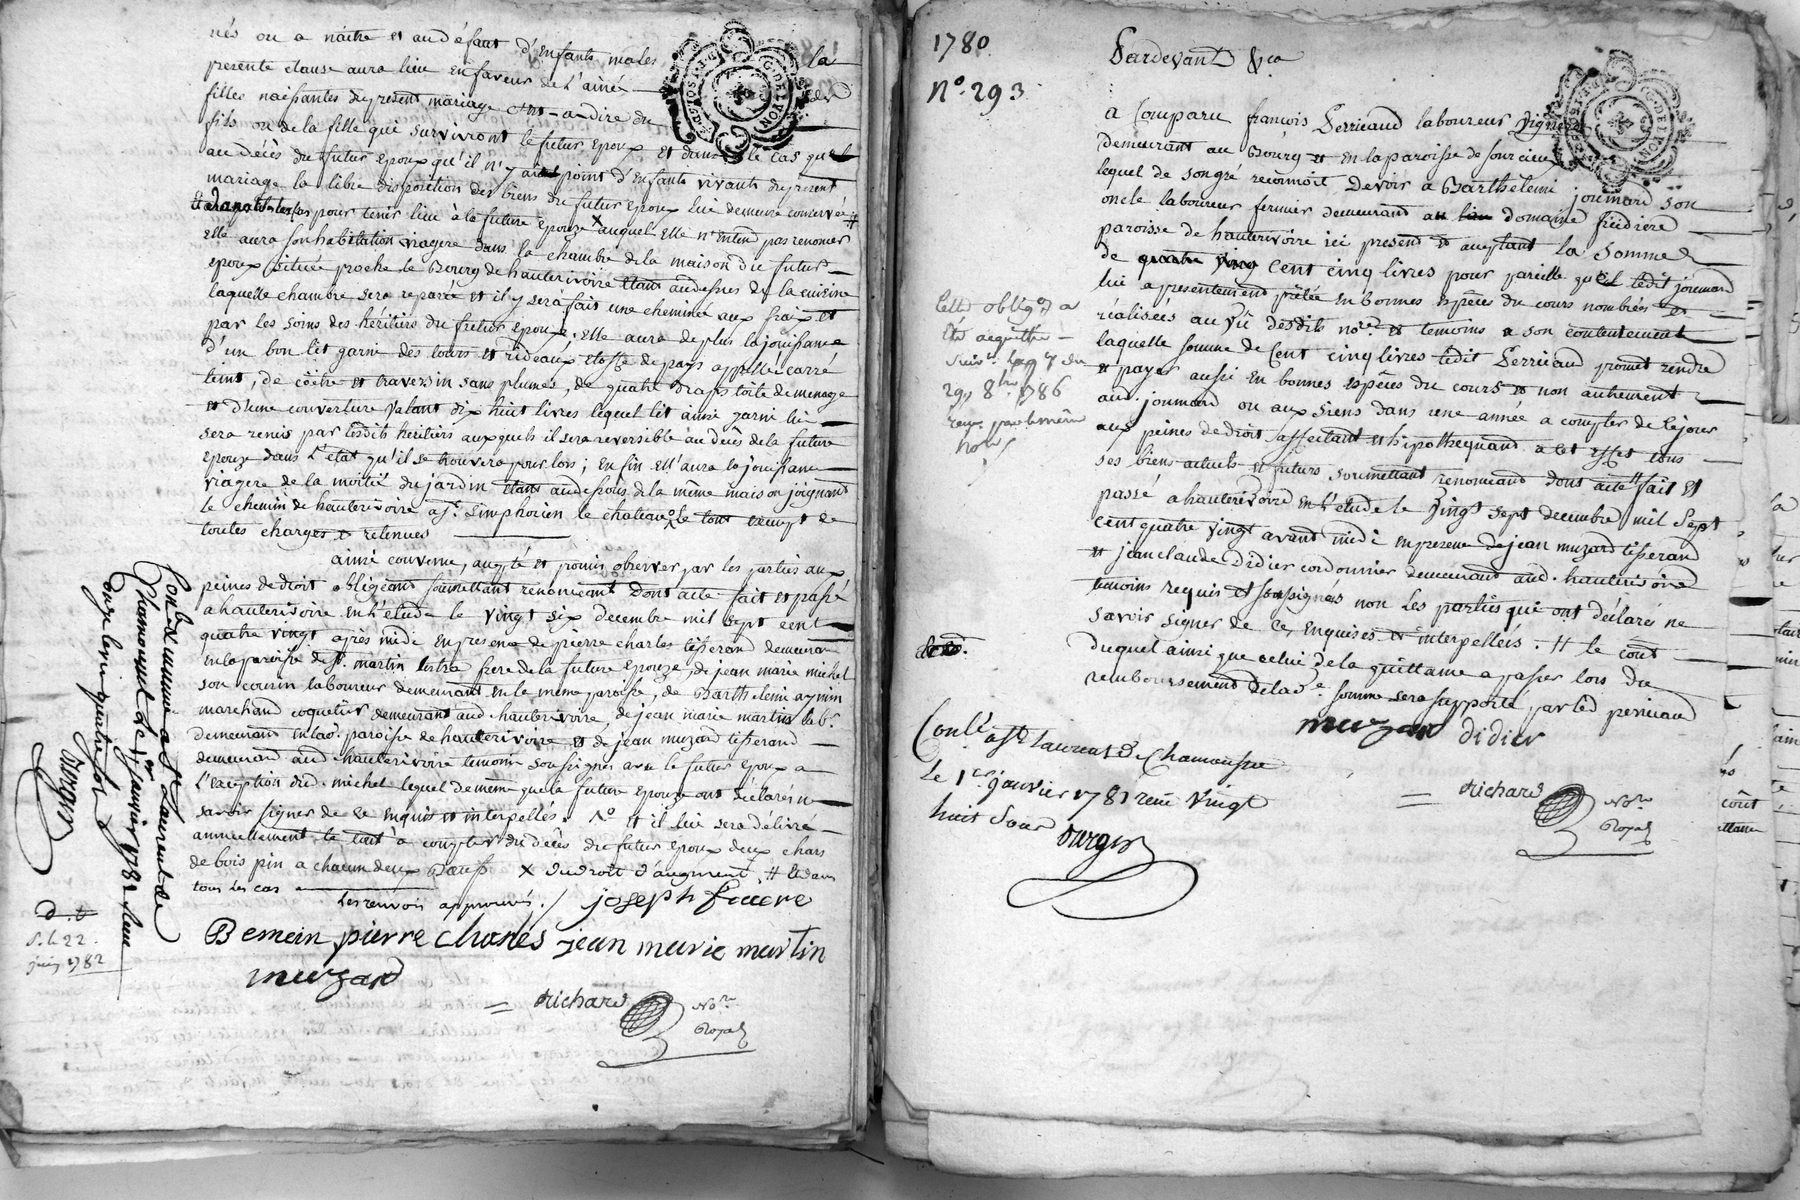 nés ou a naitre et au défaut d'Enfants males la
presente clause aura lieu en faveur de l'ainée des
filles naissantes du present mariage c'est-a-dire du
fils ou de la fille qui survivront le futur Epoux Et dans le cas qu'il
au décès du futur Epoux qu'il n'y ait point d'Enfants vivants du present
mariage la libre disposition des biens du futur Epoux lui demeure conservée #
pour tenir lieu à la future Epouze X auquel Elle n'Entend pas renoncer
Elle aura son habitation viagere dans la chambre de la maison du futur
epoux située proche le Bourg de hauterivoire Etant audessus de la cuizine
laquelle chambre sera reparée et il y sera fait une cheminée aux fraix et
par les soins des heritiers du futur Epoux; Elle aura de plus la jouissance
d'un bon lit garni des tours et rideaux etoffe de pays appellée carré
teint, de coëtre et traversin sans plumes, de quatre draps toile de menage
et d'une couverture valant dix huit livres lequel lit ainsi garni lui
sera remis par lesdits heritiers auxquels il sera reversible au décès de la future
Epouze dans l'état qu'il se trouvera pour lors; Enfin Ell'aura la jouissance
viagere de la moitié du jardin Etant audessous de la même maison joignant
le chemin de hauterivoire a St. Simphorien le chateau, le tout exempt de
toutes charges et retenues
ainsi convenu, accepté et promis observer par les parties aux
peines de droit obligeant soumettant renonceant Dont acte fait et passé
a hauterivoire En l'étude le vingt six decembre mil sept cent
quatre vingt après midi En presence de pierre charles tisserand demeurant
en la paroisse de St. martin lestra frere de la future Epouze, de jean marie michel
son cousin laboureur demeurant en la même paroisse, de Barthelemi aymin
marchand coquetier demeurant aud. hauterivoire, de jean marie martin labr.
demeurant en lad. paroisse de hauterivoire et de jean muzard tisserand
demeurant aud hauterivoire temoins soussignés avec le futur Epoux a
l'exception dud. michel lequel de même que la future Epouze ont déclarés ne
savoir signer de ce enquis et interpellés. No. et il lui sera délivré
annuellement le tout à compter du décès du futur Epoux deux chars
de bois pin a chacun deux Bœufs X du droit d'augment # Et dans
tous les cas
Les renvois approuvés. / joseph
pierre charles jean marie martin
muzard
= Richard Nore.
Royal
Conlé. a St. Laurent de
Chamousset le 1er janvier 1781
d. t
S. le 22.
juin 1782
1780
No. 293
Pardevant &ca
a Comparu françois Perricaud laboureur vigneron
demeurant au Bourg et En la paroisse de sourcieu
lequel de son gré reconnoit Devoir a Barthelemi joumard son
oncle laboureur fermier demeurant au domaine
paroisse de hauterivoire ici present et acceptant la somme
de cent cinq livres pour pareille qu'il ledit joumard
lui a presentement prêtée En bonnes Espèces du cours nombrées et
réalisées au vû desdits nore. et temoins a son contentement
laquelle somme de Cent cinq livres ledit Perricaud promet rendre
et payer aussi En bonnes Espèces du cours et non autrement
aud. joumard ou aux siens dans une année a compter de ce jour
aux peines de droit, affectant et hipothequant a cet effet tous
ses biens actuels et futurs soumettant renonceand dont acte fait Et
passé a hauterivoire En l'étude le vingt sept decembre mil sept
cent quatre vingt avant midi En presence de jean muzard tisserand
et jean claude didier cordonnier demeurant aud. hauterivoire
temoins requis et soussignés non les parties qui ont déclarés ne
savoir signer de ce, enquises et interpellées. # le cout
duquel ainsi que celui de la quittance a passer lors du
remboursement de lad. somme sera supporté par led perricaud
muzard didier
= Richard Nore.
Royal
a
eté acquittée
du
29. 8bre. 1786
Conlé. a St. Laurent de Chamousset
Le 1er janvier 1781 reçu vingt
huit sous